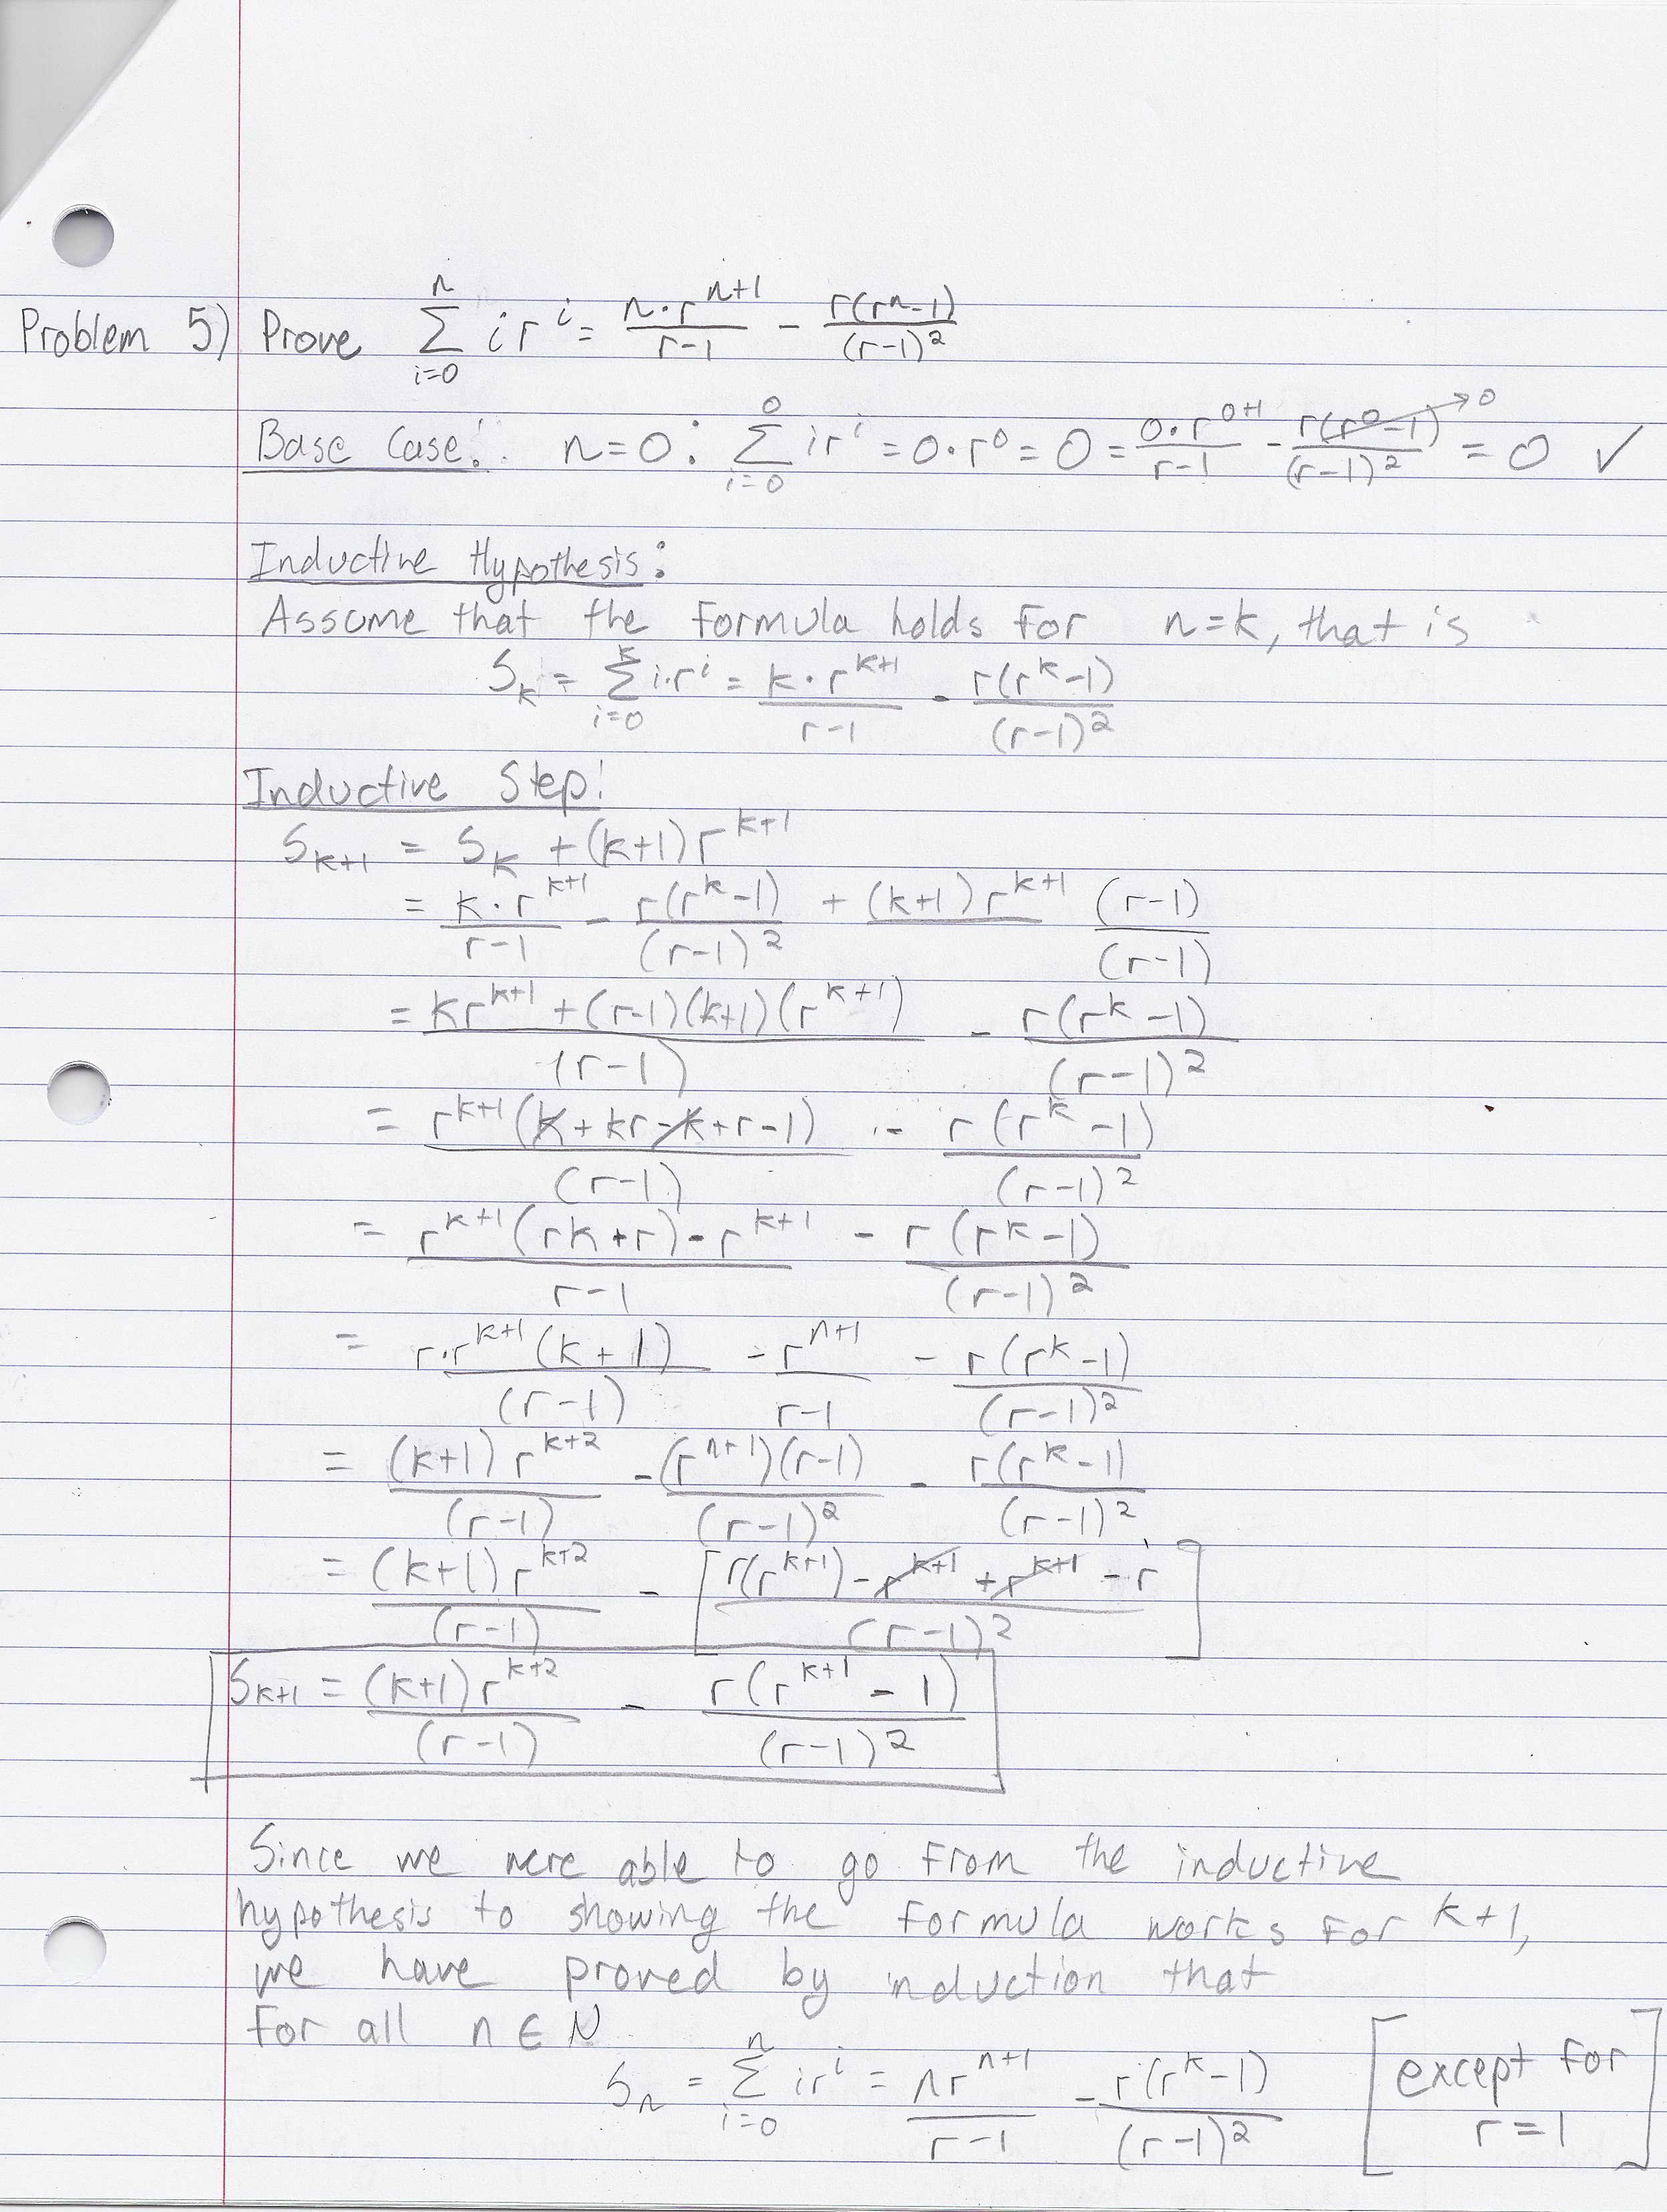 Problem 5) Prove $\sum_{i=0}^{n} i r^i = \frac{n \cdot r^{n+1}}{r-1} - \frac{r(r^n-1)}{(r-1)^2}$
Base Case: n=0: $\sum_{i=0}^{0} i r^i = 0 \cdot r^0 = 0 = \frac{0 \cdot r^{0+1}}{r-1} - \frac{r(r^0-1)}{(r-1)^2} \to 0 = 0$ ✓
Inductive Hypothesis:
Assume that the formula holds for n=k, that is
$S_k = \sum_{i=0}^{k} i \cdot r^i = \frac{k \cdot r^{k+1}}{r-1} - \frac{r(r^k-1)}{(r-1)^2}$
Inductive Step:
$S_{k+1} = S_k + (k+1) r^{k+1}$
$= \frac{k \cdot r^{k+1}}{r-1} - \frac{r(r^k-1)}{(r-1)^2} + (k+1) r^{k+1} \frac{(r-1)}{(r-1)}$
$= \frac{k r^{k+1} + (r-1)(k+1)(r^{k+1})}{(r-1)} - \frac{r(r^k-1)}{(r-1)^2}$
$= \frac{r^{k+1}(k + kr - k + r - 1)}{(r-1)} - \frac{r(r^k-1)}{(r-1)^2}$
$= \frac{r^{k+1}(rk+r) - r^{k+1}}{r-1} - \frac{r(r^k-1)}{(r-1)^2}$
$= \frac{r \cdot r^{k+1}(k+1)}{(r-1)} - \frac{r^{n+1}}{r-1} - \frac{r(r^k-1)}{(r-1)^2}$
$= \frac{(k+1) r^{k+2}}{(r-1)} - \frac{(r^{n+1})(r-1)}{(r-1)^2} - \frac{r(r^k-1)}{(r-1)^2}$
$= \frac{(k+1) r^{k+2}}{(r-1)} - \left[\frac{r(r^{k+1}) - r^{k+1} + r^{k+1} - r}{(r-1)^2}\right]$
$S_{k+1} = \frac{(k+1) r^{k+2}}{(r-1)} - \frac{r(r^{k+1}-1)}{(r-1)^2}$
Since we were able to go from the inductive
hypothesis to showing the formula works for k+1,
we have proved by induction that
for all n ∈ N
$S_n = \sum_{i=0}^{n} i r^i = \frac{n r^{n+1}}{r-1} - \frac{r(r^k-1)}{(r-1)^2}$ [except for
r=1]